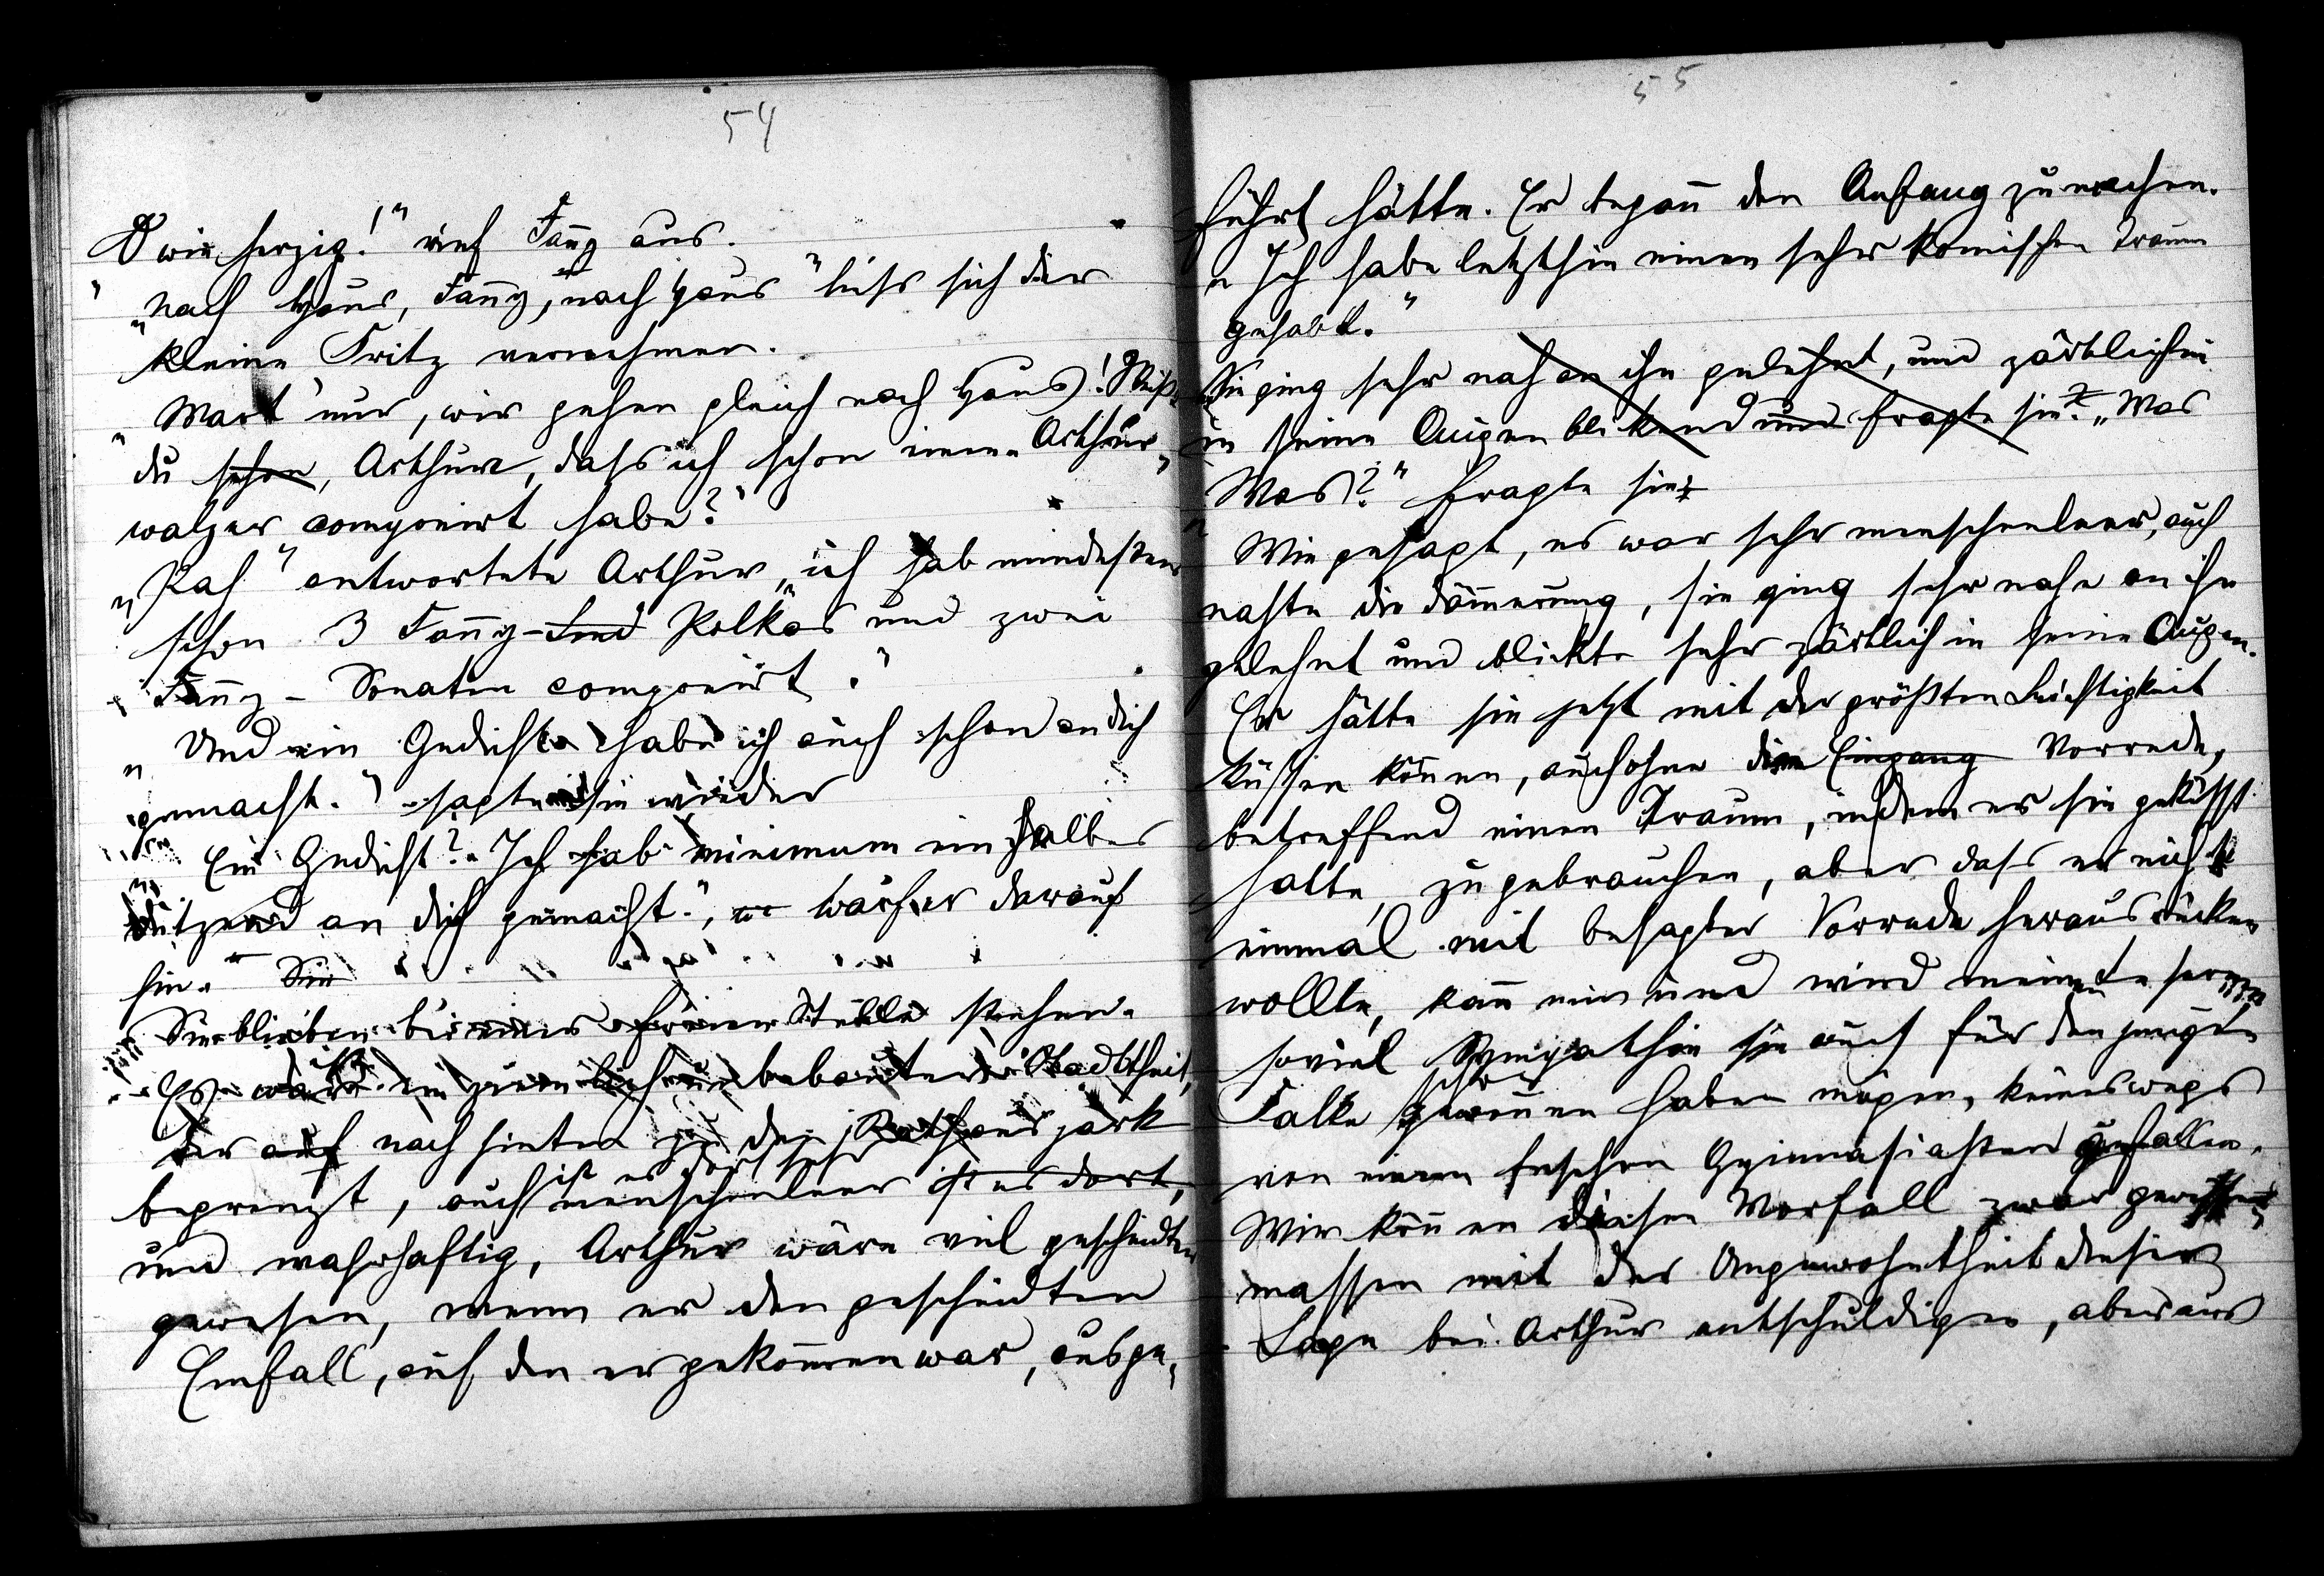 54
O wie herzig!" rief Fañy aus.
"Nach Haus, Fañy, nach Haus" ließ sich der
kleine Fritz vernehmen.
"Wart nur, wir gehen gleich nach Haus! Weißt
du schon, Arthur, dass ich schon einen Arthur-
walzer componirt habe?"
"Pah" antwortete Arthur, "ich hab mindestens
schon 3 Fañy- Polkas und zwei
Fañy-Sonaten componirt."
"Und ein Gedicht habe ich auch schon an dich
gemacht." sagte sie wieder
Ein Gedicht? Ich hab minimum ein halbes
Dutzend an dich gemacht.", warf er darauf
hin. Sie
Sie blieben bei einer Stelle stehen.
Es war ein ziemlich unbebauter Stadttheil,
der auf nach hinten zu den Rathauspark
begrenzt, auch ist es dort sehr menschenleer ist es dort,
und wahrhaftig, Arthur wäre viel gescheidter
gewesen, wenn er den gescheidten
Einfall, auf den er gekom̄en war, ausge-
55
führt hätte. Er begañ den Anfang zu machen.
"Ich habe letzthin einen sehr komischen Traum
gehabt."
Sie ging sehr nah an ihn gelehnt, und zärtlich
in seine Augen blickend und fragte sie: "Was
Was?" fragte sie.
Wie gesagt, es war sehr menschenleer, auch
nahte die Däm̄erung, sie ging sehr nahe an ihn
gelehnt und blickte sehr zärtlich in seine Augen.
Er hätte sie jetzt mit der größten Leichtigkeit
küssen köñen, auch ohne die Eingang Vorrede,
betreffend einen Traum, indem er sie geküsst
hatte, zu gebrauchen, aber dass er nicht
einmal mit besagter Vorrede herausrücken
wollte, kañ nun und wird meine
soviel Sympathie sie auch für den jungen
Falk schon gewoñen haben mögen, keineswegs
von einem feschen Gymnasiasten gefallen.
Wir köñen diesen Vorfall zwar gewisser-
massen mit der Ungewohntheit dieser
Lage bei Arthur entschuldigen, aber aus